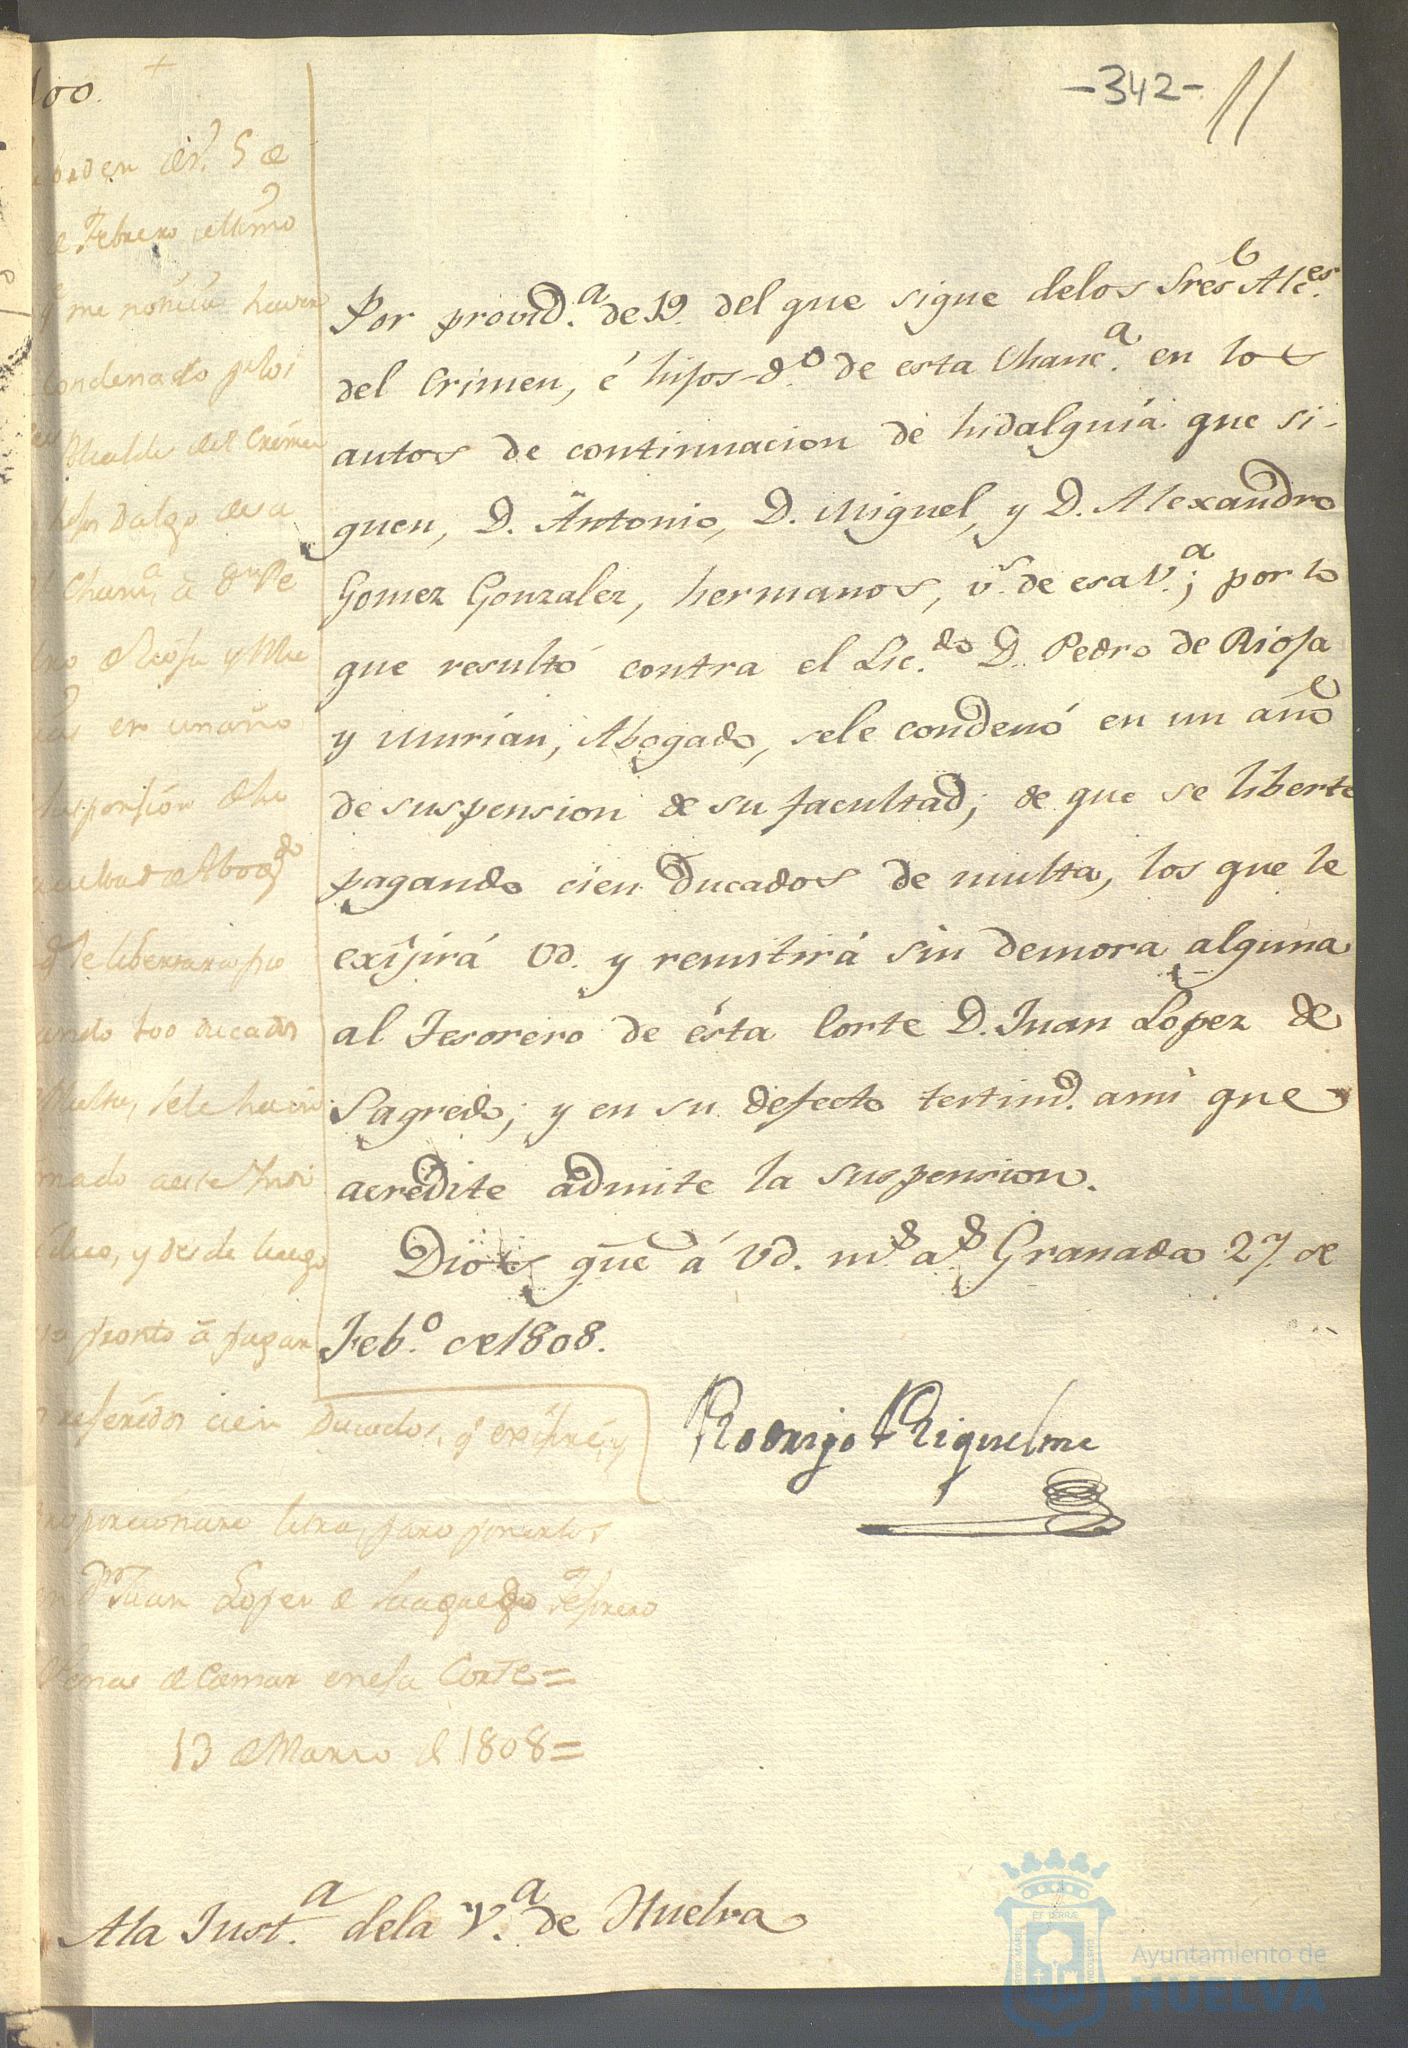 -342- 11
100.
orden de V. S. de
de Febrero ultimo
q.e me noticia haver
condenado p.r los
Alcaldes del Crimen
hijos Dalgo de esa
Chanc.a a D.n Pe
dro de Riosa y Mu
en un año
suspension de la
facultad de Abog.do
q.e se libertaria pa
gando 100 ducados
Multa, se le ha
mado ante
y desde luego
pronto á pagar
referidos cien Ducados, q.e exijiré, y
proporcionaré letra para ponerlos
en D.n Juan Lopez de Sagredo Tesorero
Penas de Camara en esa Corte=
13 de Marzo de 1808=
Por provid.a de 19. del que sigue delos Sres Alc.es
del Crimen, é hijos-d.o de esta Chanc.a en los
autos de continuacion de hidalguia que si-
guen, D. Antonio, D. Miguel, y D. Alexandro
Gomez Gonzalez, hermanos, v.s de esa V.a; por lo
que resultó contra el Lic.do D. Pedro de Riosa
y Murian, Abogado, sele condenó en un año
de suspension de su facultad; de que se liberte
pagando cien Ducados de multa, los que le
exijirá Vd. y remitirá sin demora alguna
al Tesorero de ésta Corte D. Juan Lopez de
Sagredo; y en su defecto testim.o ami que
acredite admite la suspension.
Dios gue á Vd. m.s a.s Granada 27. de
Feb.o de 1808.
Rodrigo Riquelme
Ala Just.a dela V.a de Huelva
Ayuntamiento de
HUELVA